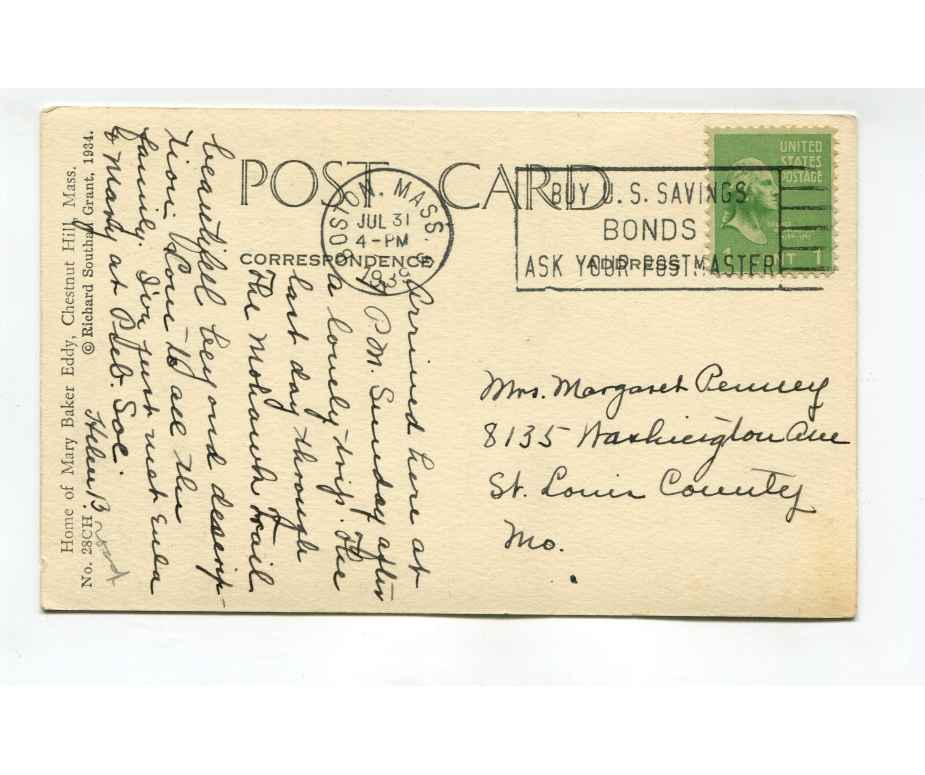 POST CARD
CORRESPONDENCE
ADDRESS
BOSTON, MASS.
JUL 31
4-PM
BUY U.S. SAVINGS
BONDS
ASK YOUR POSTMASTER
UNITED
STATES
POSTAGE
1
Arrived here at
P.M. Sunday after
a lonely trip. The
last day through
The Mohawk Trail
beautiful beyond descrip-
tion. Love to all the
family. I've just met Eula
& Mary at Pub. Soc.
Helen B
Mrs. Margaret Penney
8135 Washington Ave
St. Louis County
Mo.
Home of Mary Baker Eddy, Chestnut Hill, Mass.
No. 28CH © Richard Southall Grant, 1934.